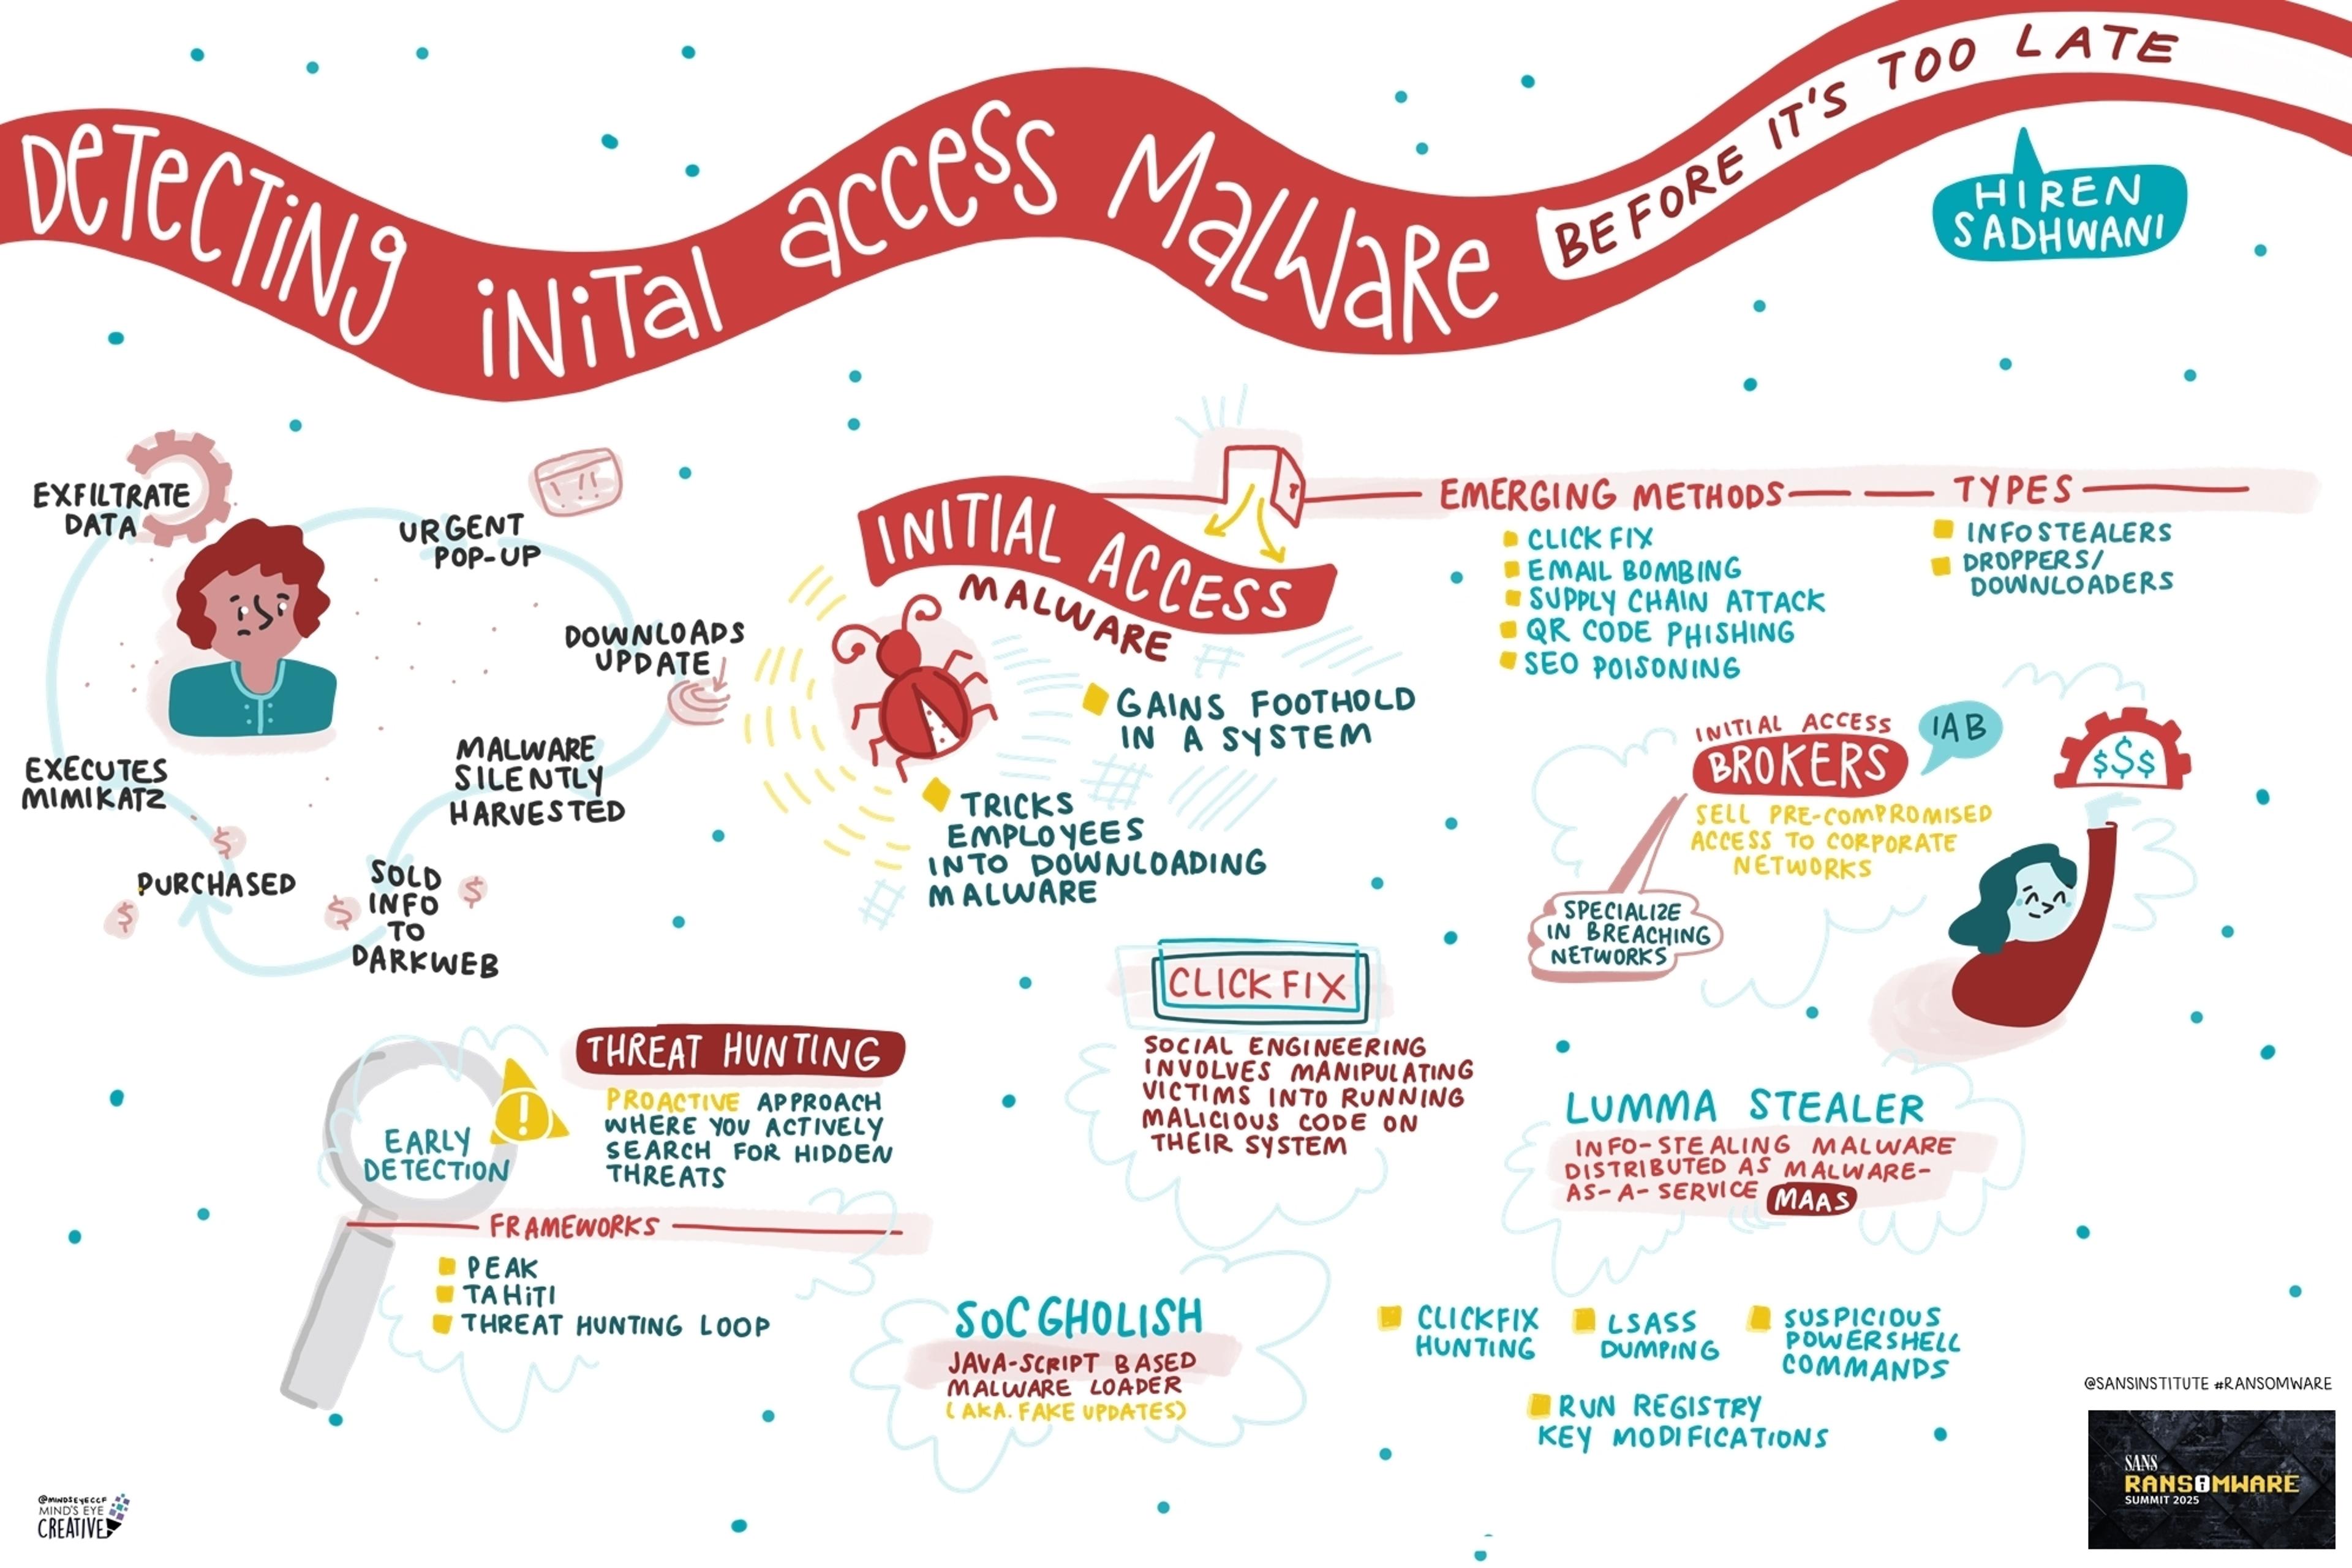 DETECTING INITAL ACCESS MALWARE BEFORE IT'S TOO LATE
HIREN
SADHWANI
EXFILTRATE
DATA
URGENT
POP-UP
DOWNLOADS
UPDATE
MALWARE
SILENTLY
HARVESTED
SOLD
INFO
TO
DARKWEB
PURCHASED
EXECUTES
MIMIKATZ
$
$
$
$
INITIAL ACCESS
MALWARE
GAINS FOOTHOLD
IN A SYSTEM
TRICKS
EMPLOYEES
INTO DOWNLOADING
MALWARE
EMERGING METHODS
CLICK FIX
EMAIL BOMBING
SUPPLY CHAIN ATTACK
QR CODE PHISHING
SEO POISONING
TYPES
INFOSTEALERS
DROPPERS/
DOWNLOADERS
INITIAL ACCESS
BROKERS
IAB
SELL PRE-COMPROMISED
ACCESS TO CORPORATE
NETWORKS
SPECIALIZE
IN BREACHING
NETWORKS
$$$
THREAT HUNTING
PROACTIVE APPROACH
WHERE YOU ACTIVELY
SEARCH FOR HIDDEN
THREATS
!
EARLY
DETECTION
FRAMEWORKS
PEAK
TAHiTI
THREAT HUNTING LOOP
CLICK FIX
SOCIAL ENGINEERING
INVOLVES MANIPULATING
VICTIMS INTO RUNNING
MALICIOUS CODE ON
THEIR SYSTEM
LUMMA STEALER
INFO-STEALING MALWARE
DISTRIBUTED AS MALWARE-
AS-A-SERVICE MAAS
SOC GHOLISH
JAVA-SCRIPT BASED
MALWARE LOADER
(AKA. FAKE UPDATES)
CLICKFIX
HUNTING
LSASS
DUMPING
SUSPICIOUS
POWERSHELL
COMMANDS
RUN REGISTRY
KEY MODIFICATIONS
@SANSINSTITUTE #RANSOMWARE
SANS
RANSOMWARE
SUMMIT 2025
@MINDSEYECCF
MIND'S EYE
CREATIVE